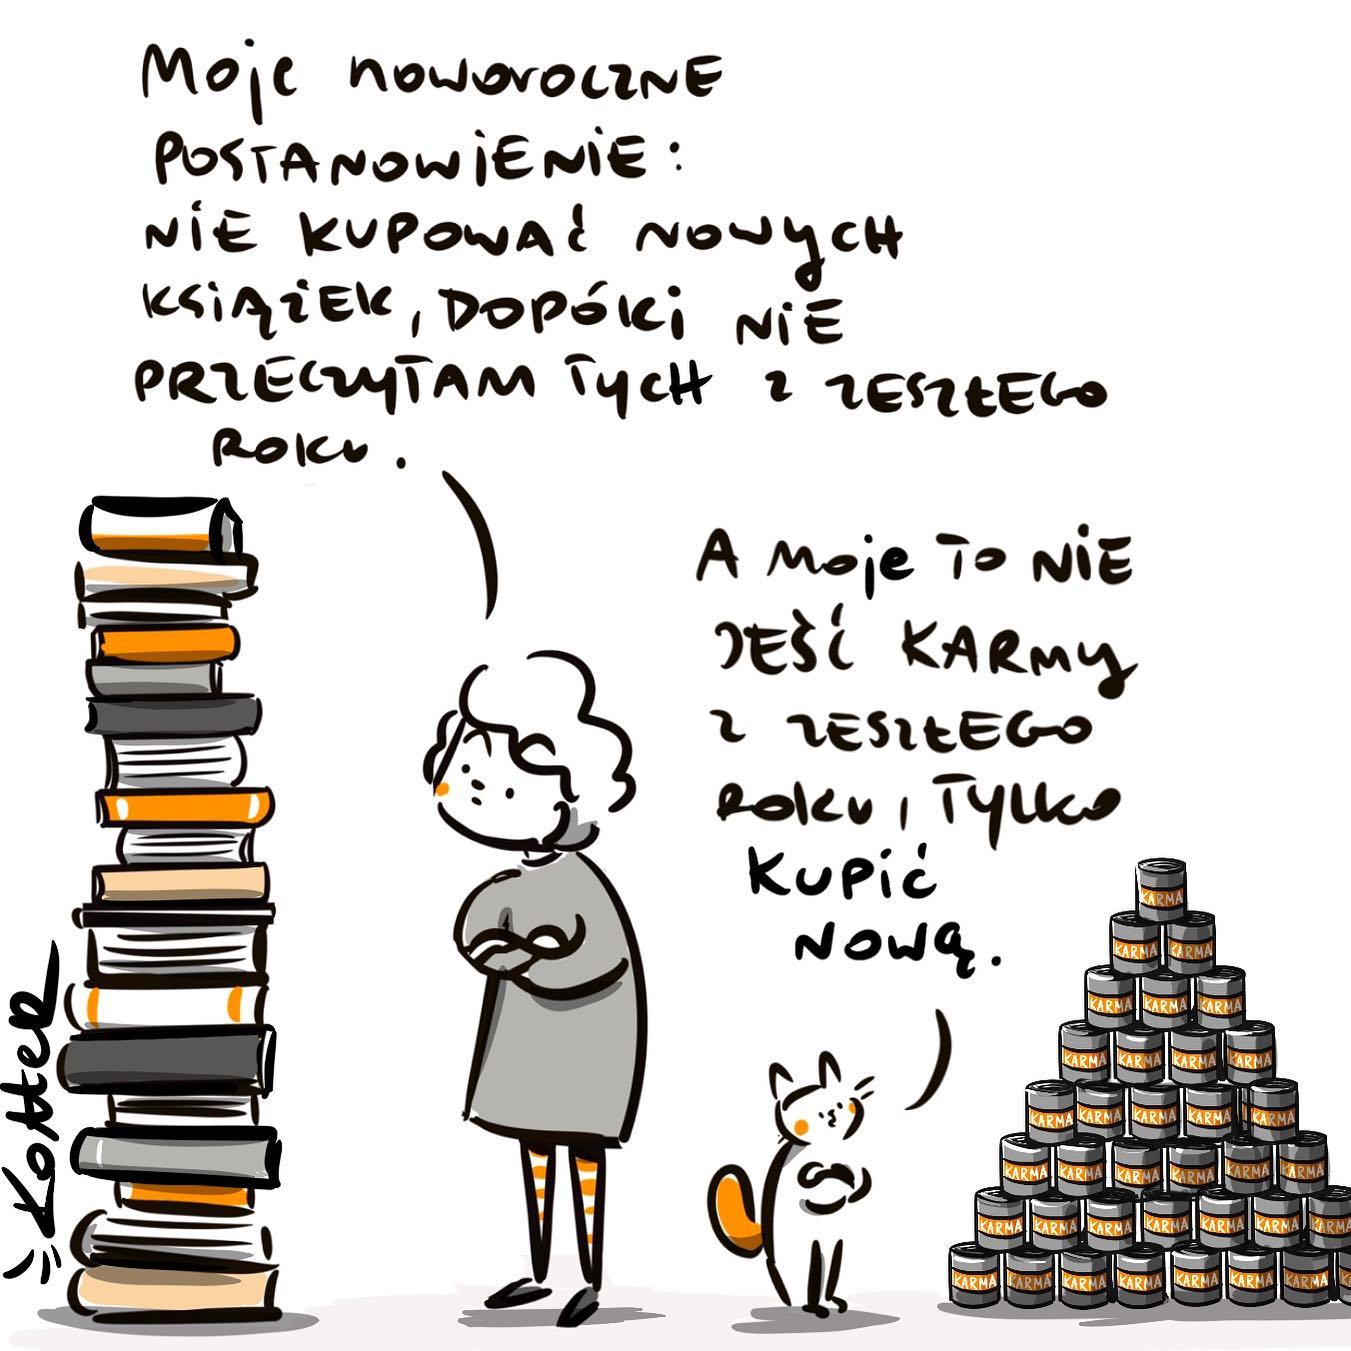 Moje noworoczne
postanowienie:
nie kupować nowych
książek, dopóki nie
przeczytam tych z zeszłego
roku.
A moje to nie
jeść karmy
z zeszłego
roku, tylko
kupić
nową.
Kotter
KARMA
KARMA KARMA
KARMA KARMA KARMA
KARMA KARMA KARMA KARMA
KARMA KARMA KARMA KARMA KARMA
KARMA KARMA KARMA KARMA KARMA KARMA
KARMA KARMA KARMA KARMA KARMA KARMA KARMA
KARMA KARMA KARMA KARMA KARMA KARMA KARMA